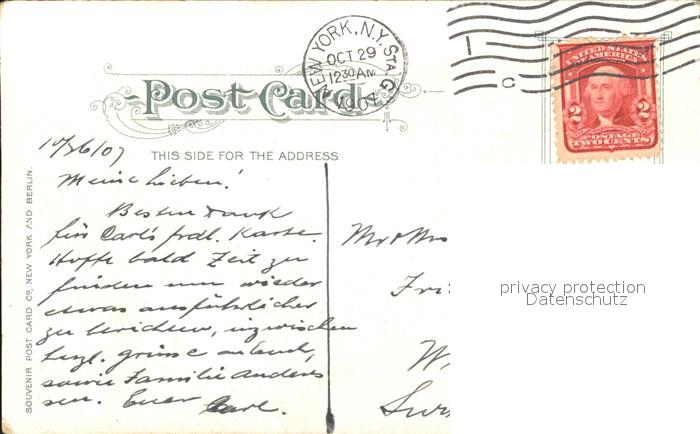 NEW YORK, N.Y. STA. G
OCT 29
12 30 AM
1907
C
UNITED STATES
OF AMERICA
2 2
POSTAGE
TWO CENTS
Post Card.
THIS SIDE FOR THE ADDRESS
SOUVENIR POST CARD CO, NEW YORK AND BERLIN.
Meine Lieben!
Besten Dank
für Carl's frdl. Karte.
Hoffe bald Zeit zu
finden um wieder
etwas ausführlicher
zu berichten, inzwischen
herzl. Grüsse an Euch,
sowie Familie Anders
sen. Euer Carl.
Mr & Mrs
privacy protection
Datenschutz